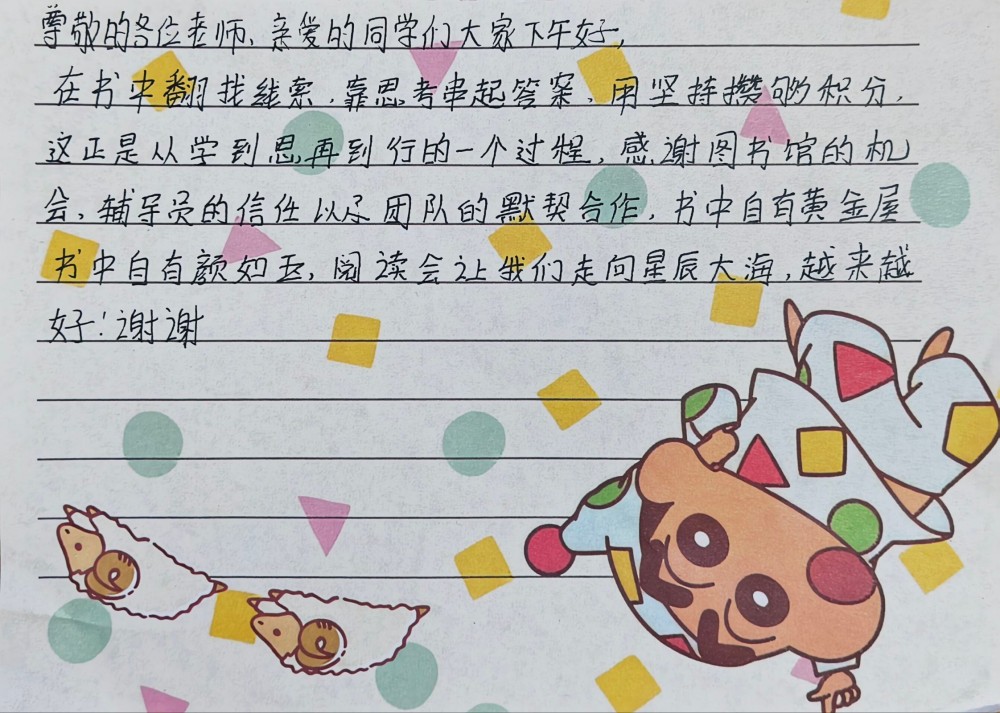 尊敬的各位老师、亲爱的同学们大家下午好,
在书中翻找线索,靠思考串起答案,用坚持攒够积分,
这正是从学到思再到行的一个过程,感谢图书馆的机
会,辅导员的信任以及团队的默契合作,书中自有黄金屋
书中自有颜如玉,阅读会让我们走向星辰大海,越来越
好!谢谢